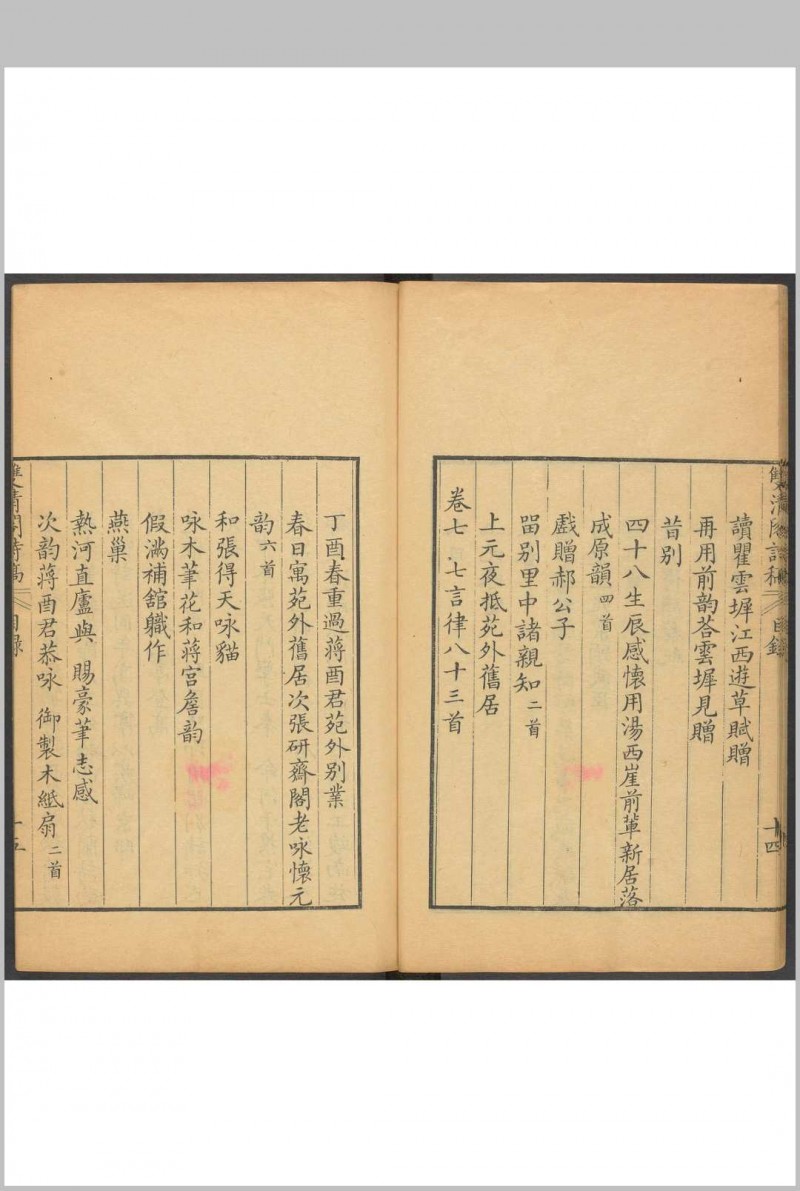 讀瞿雲墀江西遊草賦贈
再用前韵荅雲墀見贈
昔別
四十八生辰感懷用湯西崖前軰新居落
成原韻四首
戲贈郝公子
畱别里中諸親知二首
上元夜抵苑外舊居
卷七七言律八十三首
丁酉春重過蔣酉君苑外别業
春日寓苑外舊居次張研齋閣老咏懷元
韵六首
和張得天咏貓
咏木筆花和蔣宫詹韵
假滿補舘軄作
燕巢
熱河直廬與 賜豪筆志感
次韵蔣酉君恭咏 御製木紙扇二首
目録